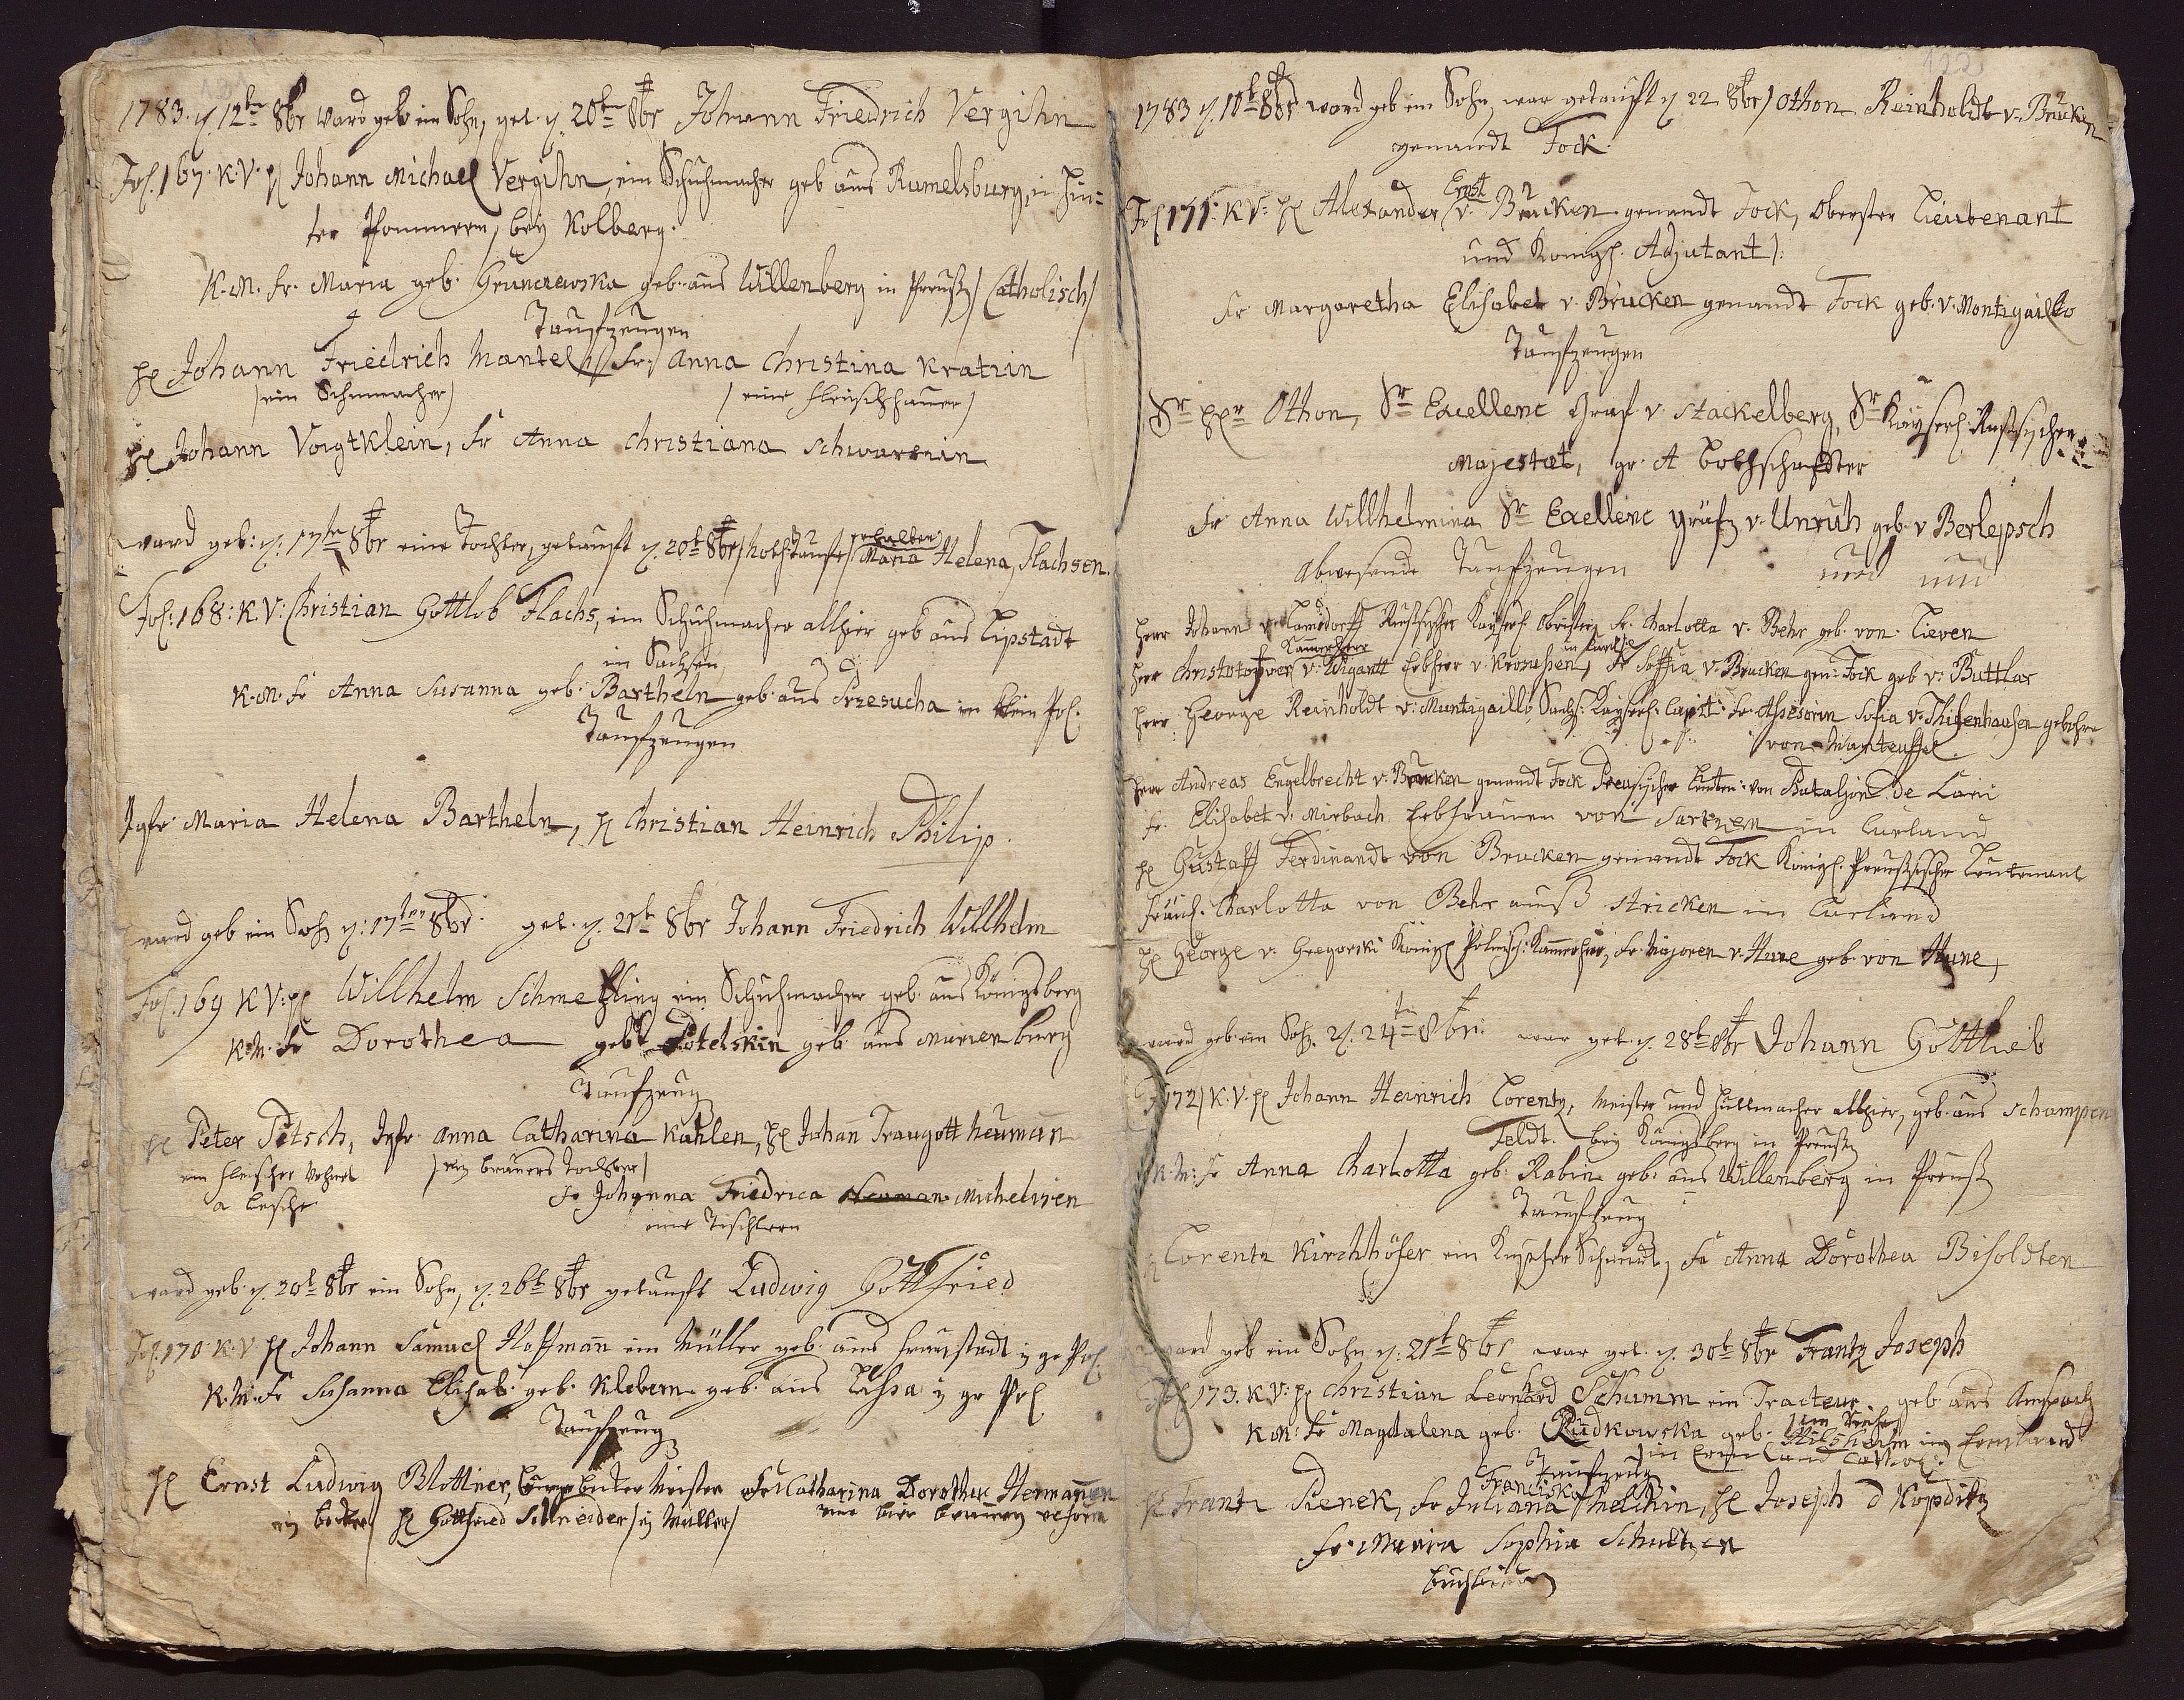 121
1783. d. 12tn 8br ward geb ein Sohn, get. d. 20tn 8br Johann Friedrich Vergihn
Fol. 167. K. V. H Johann Michael Vergihn, ein Schuhmacher geb aus Rumelsburg, in Hin-
ter Pommern, bey Kolberg.
K. M. Fr. Maria geb. Grunczewska geb. aus Willenberg in Preuß / Catholisch /
Taufzeugen
H Johann Friedrich Mantel / Fr. Anna Christina Kratzin
/ ein Schumacher / / eine Fleischhauer /
H Johann Voigtklein, Fr Anna Christiana Schwartzin
ward geb: d. 17tn 8br eine Tochter, getauft d. 20t 8br / Noth Taufe / erhalten Maria Helena, Flachsen.
Fol: 168: K. V: Christian Gottlob Flachs, ein Schuhmacher allhier geb aus Lipstadt
in Sachsen
K. M. Fr Anna Susanna geb. Bartheln geb. aus Przesucha in klein Pol.
Taufzeugen
Jgfr. Maria Helena Bartheln, H Christian Heinrich Philip.
ward geb ein Sohn d: 17ten 8br. get. d. 21t 8br Johann Friedrich Willhelm
Fol. 169 K V: H Willhelm Schmeling ein Schuhmacher geb. aus Königsberg
K. M. Fr Dorothea geb. Potelskin geb. aus Marienburg
Taufzeug
H Peter Pitsch, Jgfr. Anna Catharina Kahlen, H Johan Traugott Heuman
ein Fleischer / ein brauers Tochter /
a Lesche Fr Johanna Friedrica Neuman Michelisen
eine Tischlern
ward geb. d. 20t 8br ein Sohn, d. 26t 8br getauft Ludwig Gottfried
Fol. 170 K. V H Johann Samuel Hoffman ein Müller geb. aus Fraustadt in gr Pol
K. M. Fr Susanna Elisab. geb. Klebern geb. aus Lissa in gr Pol
Taufzeug
H Ernst Ludwig Blottner, Meister Fr Catharina Dorothea Hermannen
ein becker H Gottfried Schneider / ein Müller / eine bier
122
1783 d. 10t 8br ward geb ein Sohn, war getauft d 22 8br / Othon Reinholdt v. Brücken
genandt Fock
Fol 171: K V: H Alexander Ernst v. Brücken genandt Fock, Oberster Lieutenant
und Königl. Adjutant /.
Fr Margaretha Elisabet v. Brücken genandt Fock geb. v. Montigaillo
Taufzeugen
Sr Hr Othon, Sr Exellenc Graf v. Stackelberg, Sr Kayserl. Russischen
Majestæt, gr. A Bothschaffter
Fr Anna Willhelmina Sr Exellenc Gräfin v. Unruh geb. v Berlepsch
Abwesende Taufzeugen und
Herr Johann v. Lamsdorff Russischer Kayserl Obrister Fr. Charlotta v. Behr geb. von Lieven
Kamerherr
Herr Christoffer v. Wigantt Erbherr v. Fr Soffia v. Brucken gen: Fock geb v: Buttlar
Herr George Reinholdt v. Muntigaillo Kayserl: Capit: Fr. Assesorin Sofia v. Thisenhausen gebohrn
von Manteuffel
Herr Andreas Engelbrecht v. Brucken genandt Fock Preusischer Leuten: von Batalion de Lari
Fr. Elisabet v. Mirbach Erbfrauen von in Curland
H Gustaff Ferdinandt von Brucken genandt Fock Königl. Preußischer Leutenant
Fräul. Charlotta von Behr auß Stricken in Curland
H George v. Gregorski Königl Polnisch: Kamerherr, Fr. Majoren v. Hune geb. von Hune,
ward geb. ein Sohn d. 24tn 8br: war get. d. 28t 8br Johann Gottlieb
F 172 / K. V. H Johann Heinrich Lorentz, Meister und Huttmacher allhier, geb. aus Schampen
Feldt. bey Königsberg in Preuß
K. M: Fr Anna Charlotta geb. Rabin geb. aus Willenberg in Preuß
Taufzeug
H Lorentz Kirchhöfer ein Kupfer Schmidt, Fr Anna Dorothea Bisoldten
ward geb ein Sohn d. 21t 8br war get. d. 30t 8br Frantz Joseph
Fol 173. K. V: H Christian Leonhard Schumm ein Tracteur geb. aus Anspach
K M: Fr Magdalena geb. Rudkowska geb. in Ermland
in Ermland Cathol:
Taufzeug
Franciska
H Frantz Pienek, Fr Juliana Thelchin, H Joseph d Kopditz
Fr. Maria Sophia Schultzen